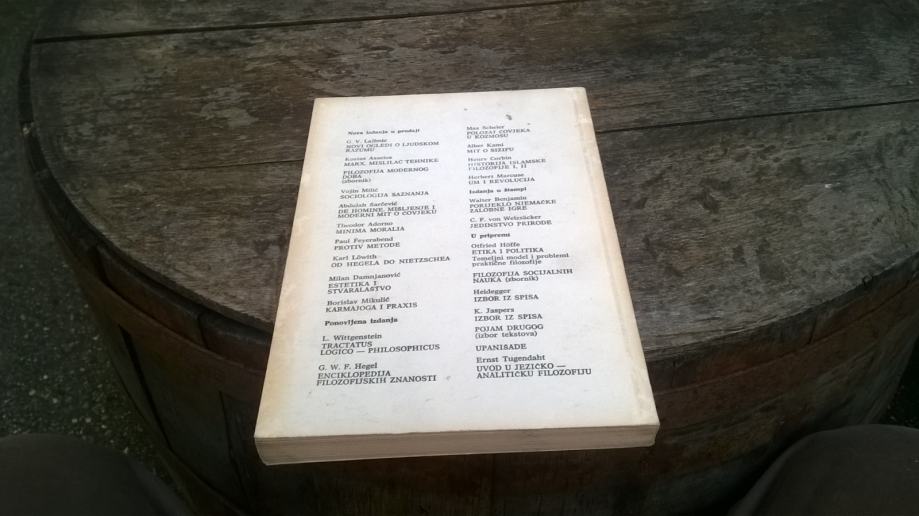 Nova izdanja u prodaji
G. V. Leibniz
NOVI OGLEDI O LJUDSKOM
RAZUMU
Kostas Axelos
MARX, MISLILAC TEHNIKE
FILOZOFIJA MODERNOG
DOBA
(zbornik)
Vojin Milić
SOCIOLOGIJA SAZNANJA
Abdulah Šarčević
DE HOMINE, MIŠLJENJE I
MODERNI MIT O ČOVJEKU
Theodor Adorno
MINIMA MORALIA
Paul Feyerabend
PROTIV METODE
Karl Löwith
OD HEGELA DO NIETZSCHEA
Milan Damnjanović
ESTETIKA I
STVARALAŠTVO
Borislav Mikulić
KARMAJOGA I PRAXIS
Ponovljena izdanja
L. Wittgenstein
TRACTATUS
LOGICO — PHILOSOPHICUS
G. W. F. Hegel
ENCIKLOPEDIJA
FILOZOFIJSKIH ZNANOSTI
Max Scheler
POLOŽAJ ČOVJEKA
U KOZMOSU
Alber Kami
MIT O SIZIFU
Henry Corbin
HISTORIJA ISLAMSKE
FILOZOFIJE I, II
Herbert Marcuse
UM I REVOLUCIJA
Izdanja u štampi
Walter Benjamin
PORIJEKLO NJEMAČKE
ŽALOBNE IGRE
C. F. von Weizsäcker
JEDINSTVO PRIRODE
U pripremi
Otfried Höffe
ETIKA I POLITIKA
Temeljni model i problemi
praktične filozofije
FILOZOFIJA SOCIJALNIH
NAUKA (zbornik)
Heidegger
IZBOR IZ SPISA
K. Jaspers
IZBOR IZ SPISA
POJAM DRUGOG
(izbor tekstova)
UPANIŠADE
Ernst Tugendaht
UVOD U JEZIČKO —
ANALITIČKU FILOZOFIJU